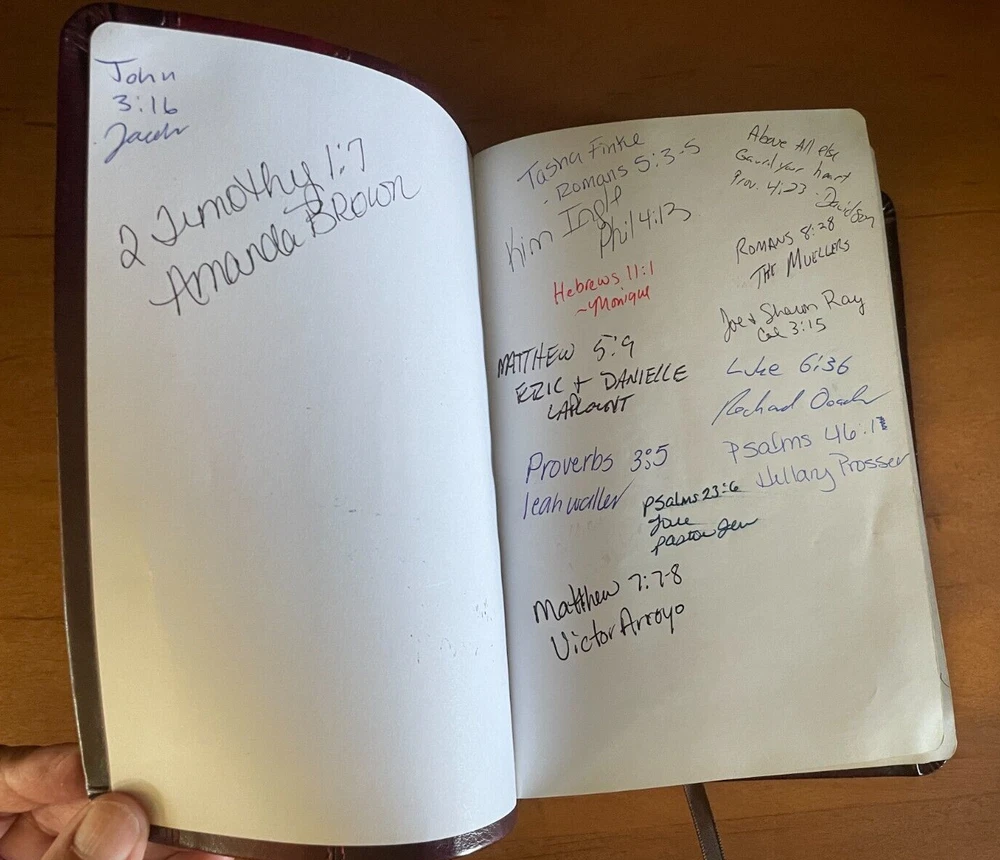 John
3:16
Jacob
2 Timothy 1:7
Amanda Brown
Tasha Finke
- Romans 5:3-5
Kim Ingf
Phil 4:13
Hebrews 11:1
~Monique
MATTHEW 5:9
ERIC + DANIELLE
LAPLOUNT
Proverbs 3:5
leah waller
Psalms 23:6
Love
Pastor Jen
Matthew 7:7-8
Victor Arroyo
Above All else
Guard your heart
Prov. 4:23 - Davidson
ROMANS 8:28
THE MUELLERS
Joe + Sharon Ray
Col 3:15
Luke 6:36
Richard
Psalms 46:1
Hillary Prosser